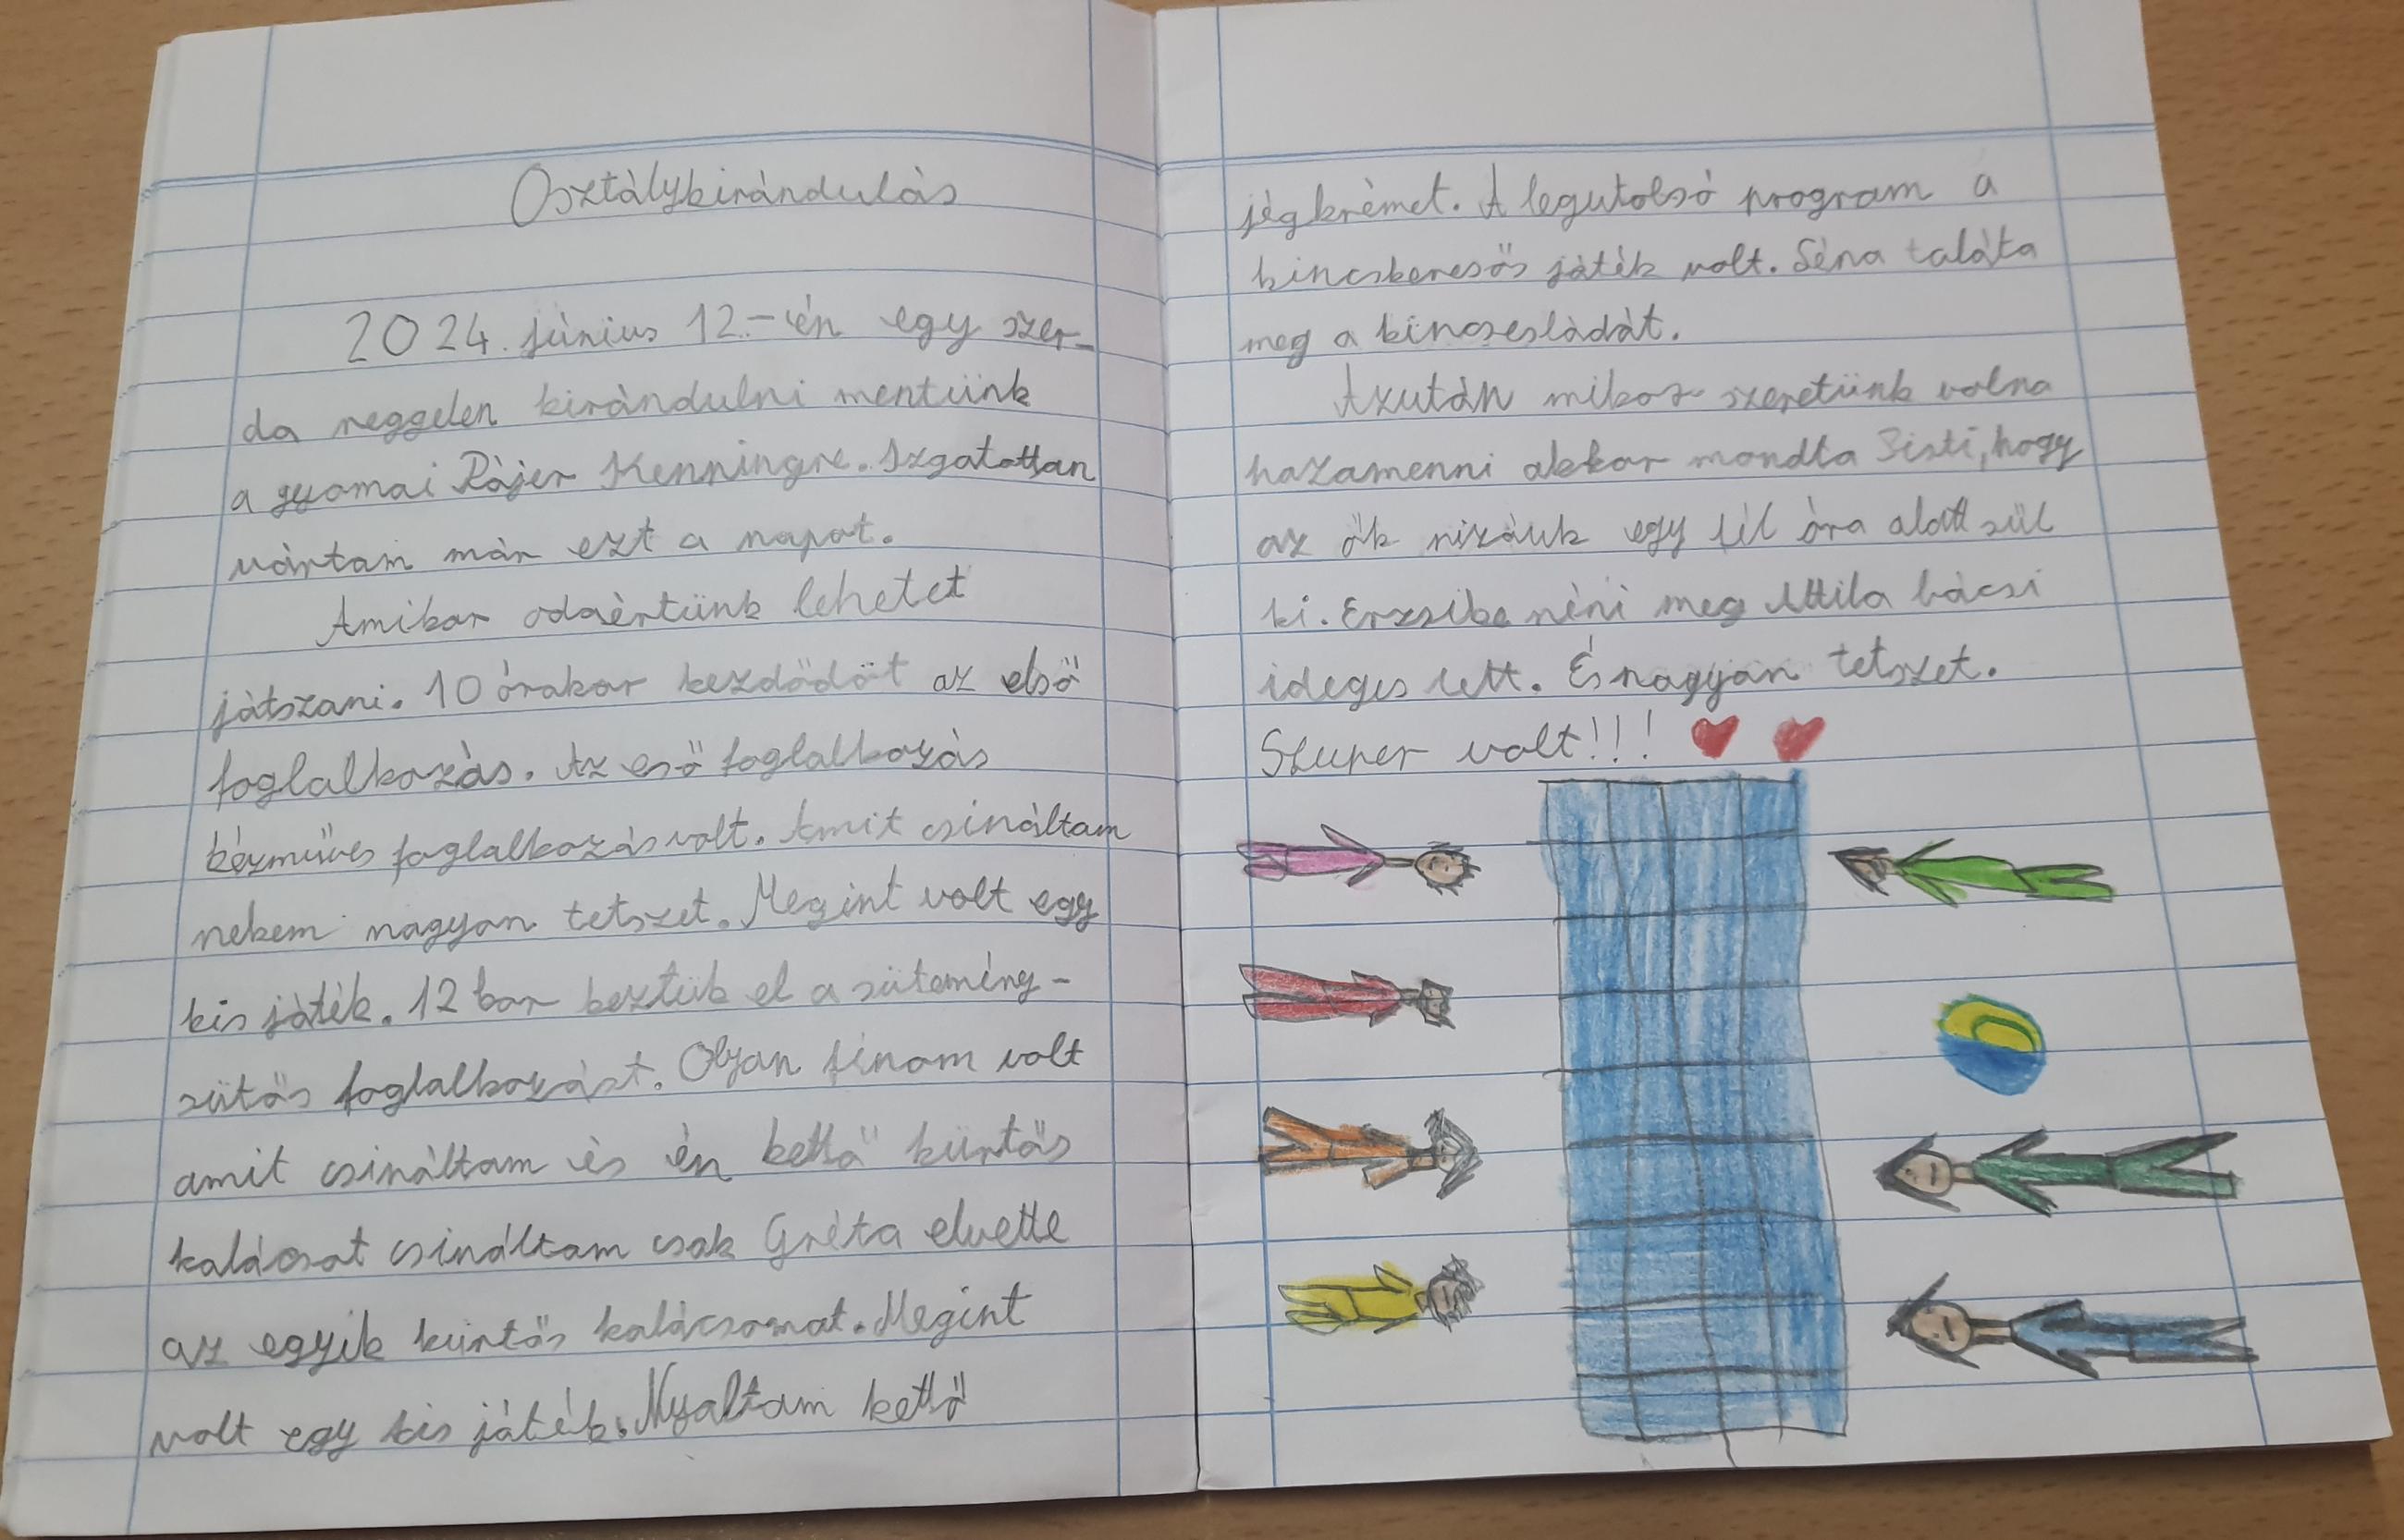 Osztálykirándulás
2024. június 12.-én egy szer-
da reggelen kirándulni mentünk
a gyomai Pájer Kenningre. Izgatottan
vártam már ezt a napot.
Amikor odaértünk lehetet
játszani. 10 órakor kezdődöt az első
foglalkozás. Az eső foglalkozás
kézműves foglalkozás volt. Amit csináltam
nekem nagyon tetszet. Megint volt egy
kis játék. 12 kor keztük el a sütemény-
sütős foglalkozást. Olyan finom volt
amit csináltam és én kettő kürtős
kalácsot csináltam csak Gréta elvette
az egyik kürtős kalácsomat. Megint
volt egy kis játék. Nyaltam kettő
jégkrémet. A legutolsó program a
kincskeresős játék volt. Séna taláta
meg a kincsesládát.
Azután mikor szeretünk volna
hazamenni akkor mondta Sisti, hogy
az ők pizáuk egy fél óra alatt sül
ki. Erzsike néni meg Attila bácsi
ideges lett. És nagyon tetszet.
Szuper volt!!!